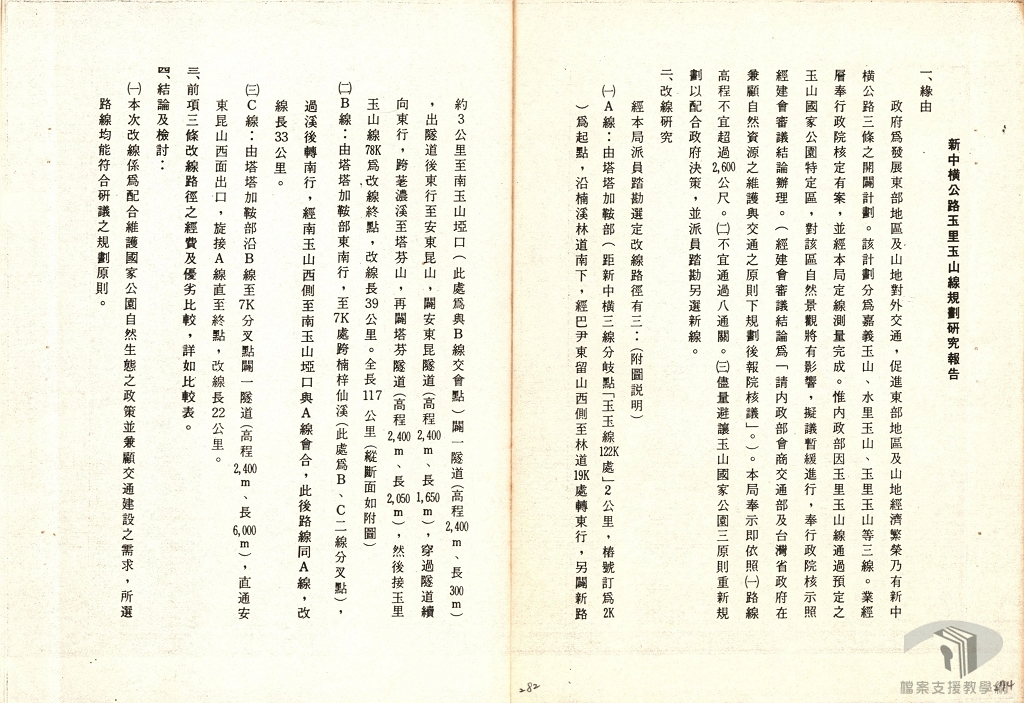 新中橫公路玉里玉山線規劃研究報告
一、緣由
政府爲發展東部地區及山地對外交通，促進東部地區及山地經濟繁榮乃有新中
橫公路三條之開闢計劃。該計劃分爲嘉義玉山、水里玉山、玉里玉山等三線。業經
層奉行政院核定有案，並經本局定線測量完成。惟內政部因玉里玉山線通過預定之
玉山國家公園特定區，對該區自然景觀將有影響，擬議暫緩進行，奉行政院核示照
經建會審議結論辦理。（經建會審議結論爲「請內政部會商交通部及台灣省政府在
兼顧自然資源之維護與交通之原則下規劃後報院核議」。）。本局奉示即依照㈠路線
高程不宜超過2,600公尺。㈡不宜通過八通關。㈢儘量避讓玉山國家公園三原則重新規
劃以配合政府決策，並派員踏勘另選新線。
二、改線研究
經本局派員踏勘選定改線路徑有三：（附圖説明）
㈠A線：由塔塔加鞍部（距新中橫三線分岐點「玉玉線122K處」2公里，樁號訂爲2K
）爲起點，沿楠溪林道南下，經巴尹東留山西側至林道19K處轉東行，另闢新路
約3公里至南玉山埡口（此處爲與B線交會點）闢一隧道（高程2,400m、長300m）
，出隧道後東行至安東昆山，闢安東昆隧道（高程2,400m、長1,650m），穿過隧道續
向東行，跨荖濃溪至塔芬山，再闢塔芬隧道（高程2,400m、長2,050m），然後接玉里
玉山線78K爲改線終點，改線長39公里。全長117公里（縱斷面如附圖）
㈡B線：由塔塔加鞍部東南行，至7K處跨楠梓仙溪（此處爲B、C二線分叉點），
過溪後轉南行，經南玉山西側至南玉山埡口與A線會合，此後路線同A線，改
線長33公里。
㈢C線：由塔塔加鞍部沿B線至7K分叉點闢一隧道（高程2,400m、長6,000m），直通安
東昆山西面出口，旋接A線直至終點，改線長22公里。
三、前項三條改線路徑之經費及優劣比較，詳如比較表。
四、結論及檢討：
㈠本次改線係爲配合維護國家公園自然生態之政策並兼顧交通建設之需求，所選
路線均能符合研議之規劃原則。
282
檔案支援教學網